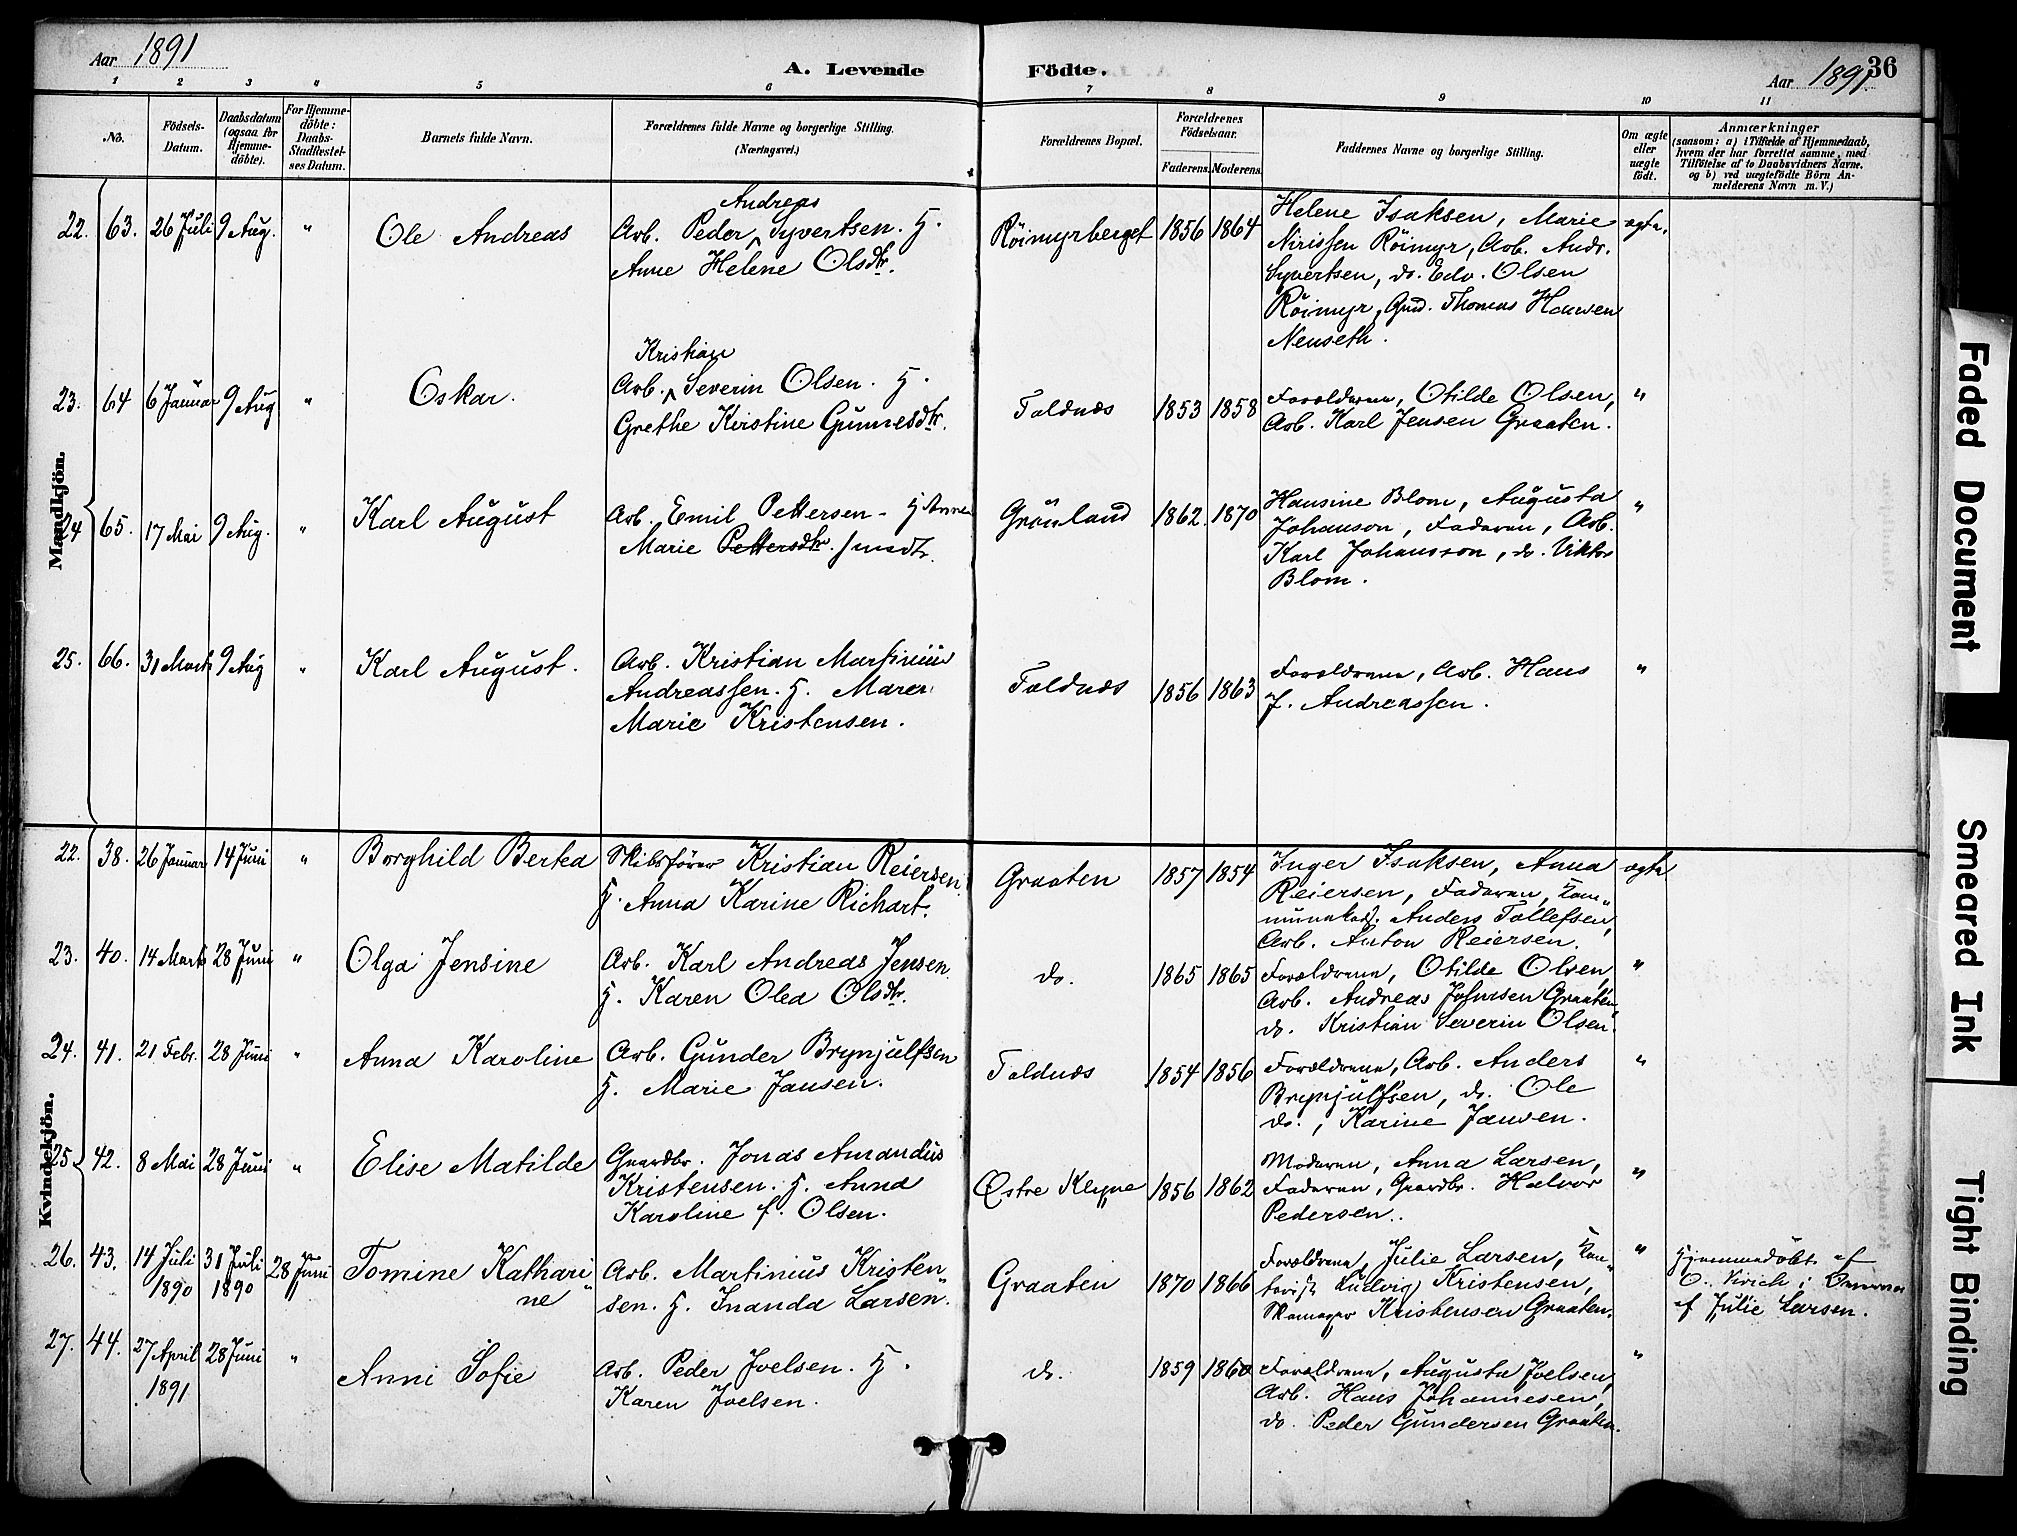 Aar 1891
A. Levende Födte.
Aar 1891
36
1 2 3 " 5 6 7 8 9 10 11
No.
Födsels-Datum.
Daabsdatum (ogsaa for Hjemme-döbte).
For Hjemme-döbte: Daabs-Stadfæstel-ses Datum.
Barnets fulde Navn.
Forældrenes fulde Navne og borgerlige Stilling.
(Næringsvei.)
Forældrenes Bopæl.
Forældrenes Födselsaar.
Faderens. Moderens.
Faddernes Navne og borgerlige Stilling.
Om ægte eller uægte födt.
Anmærkninger
(saasom: a) i Tilfælde af Hjemmedaab,
hvem der har forrettet samme, med
Tilföielse af to Daabsvidners Navne.
og b) ved uægtefödte Börn An-
melderens Navn m. V.)
Mandkjön.
22. 63. 26 Juli 9 Aug. " Ole Andreas
Andreas
Arb. Peder Syvertsen. H.
Anne Helene Olsdtr.
Röimyrberget 1856 1864
Helene Isaksen, Marie
Nirissen Röimyr, Arb. Andr.
Syvertsen, do. Edv. Olsen
Röimyr, Gmd. Thomas Hansen
Neuseth.
ægte.
23. 64 6 Januar 9 Aug " Oskar.
Kristian
Arb. Severin Olsen. H.
Grethe Kristine Gunnesdtr.
Foldnæs 1853 1858
Forældrene, Otilde Olsen,
Arb. Karl Jensen Graaten.
"
24 65. 17 Mai 9 Aug. " Karl August
Arb. Emil Pettersen - H Anne
Marie Pettersdtr. Smedt.
Grönland 1862. 1870
Hansine Blom, Augusta
Johanson, Faderen, Arb.
Karl Johansson, do. Viktor
Blom.
"
25. 66. 31 Marts 9 Aug " Karl August.
Arb. Kristian Martinius
Andreassen. H. Maren
Marie Kristensen.
Foldnæs 1856 1863
Forældrene, Arb. Hans
J. Andreassen.
"
Kvindekjön.
22. 38. 26 Januar 14 Juni " Borghild Bertea
Skibsförer Kristian Reiersen
H. Anna Karine Richart.
Graaten 1857 1854
Inger Isaksen, Anna
Reiersen, Faderen, Kom-
munekas. Anders Tollefsen,
Arb. Anton Reiersen.
ægte
23. 40. 14 Marts 28 Juni " Olga Jensine
Arb. Karl Andreas Jensen
H. Karen Olea Olsdtr.
do. 1865 1865
Forældrene, Otilde Olsen,
Arb. Andreas Johnsen Graaten
do. Kristian Severin Olsen.
"
24. 41. 21 Febr. 28 Juni " Anna Karoline
Arb. Gunder Brynjulfsen
H. Marie Jansen.
Foldnæs 1854 1856
Forældrene, Arb. Anders
Brynjulfsen, do. Ole
do., Karine Jansen.
"
25 42. 8 Mai 28 Juni " Elise Matilde
Gaardbr. Jonas Amandus
Kristensen. H. Anna
Karoline f. Olsen.
Østre Klyve 1856 1862
Moderen, Anna Larsen,
Faderen, Gaardbr. Halvor
Pedersen.
"
26. 43. 14 Juli 1890 31 Juli 1890 28 Juni Tomine Kathari
ne
Arb. Martinius Kristen
sen. H. Inanda Larsen.
Graaten 1870 1866
Forældrene, Julie Larsen, Kon-
torist Ludvig Kristensen,
Skomager Kristensen Graaten.
"
Hjemmedöbt af
af Julie Larsen.
27. 44. 27 April 1891 28 Juni " Anni Sofie
Arb. Peder Joelsen. H.
Karen Joelsen.
do. 1859 1860
Forældrene, Augusta Joelsen,
Arb. Hans Johannesen,
do. Peder Gundersen Graaten.
"
Faded Document
Smeared Ink
Tight Binding